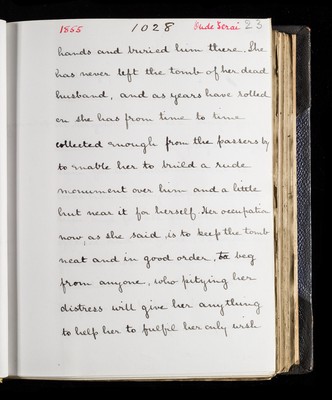 1855 1028 Dude Serai 23
hands and buried him there. She
has never left the tomb of her dead
husband, and as years have rolled
on she has from time to time
collected enough from the passers by
to enable her to build a rude
monument over him and a little
hut near it for herself. Her occupation
now, as she said, is to keep the tomb
neat and in good order, to beg
from anyone, who pitying her
distress will give her anything
to help her to fulfil her only wish